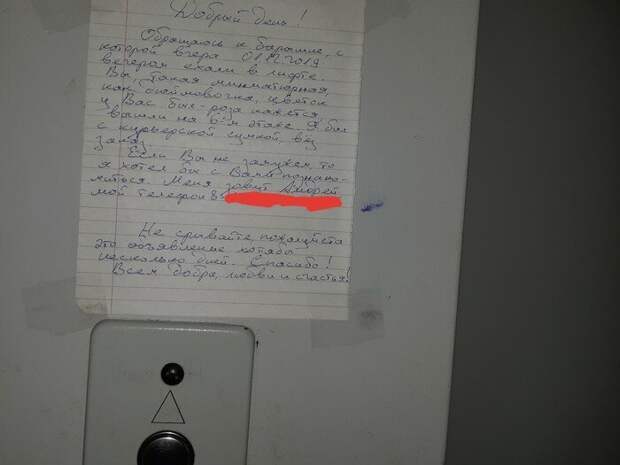 Добрый день!
Обращаюсь к барышне, с
которой вчера 01.12.2019
вечером ехали в лифте.
Вы, такая миниатюрная,
как дюймовочка, цветок
у Вас был - роза кажется,
вышли на 6-м этаже. Я был
с курьерской сумкой, вёз
заказ.
Если Вы не замужем, то
я хотел бы с Вами познако-
миться. Меня зовут Андрей
мой телефон 8
Не срывайте, пожалуйста
это объявление хотябы
несколько дней. Спасибо!
Всем добра, любви и счастья!